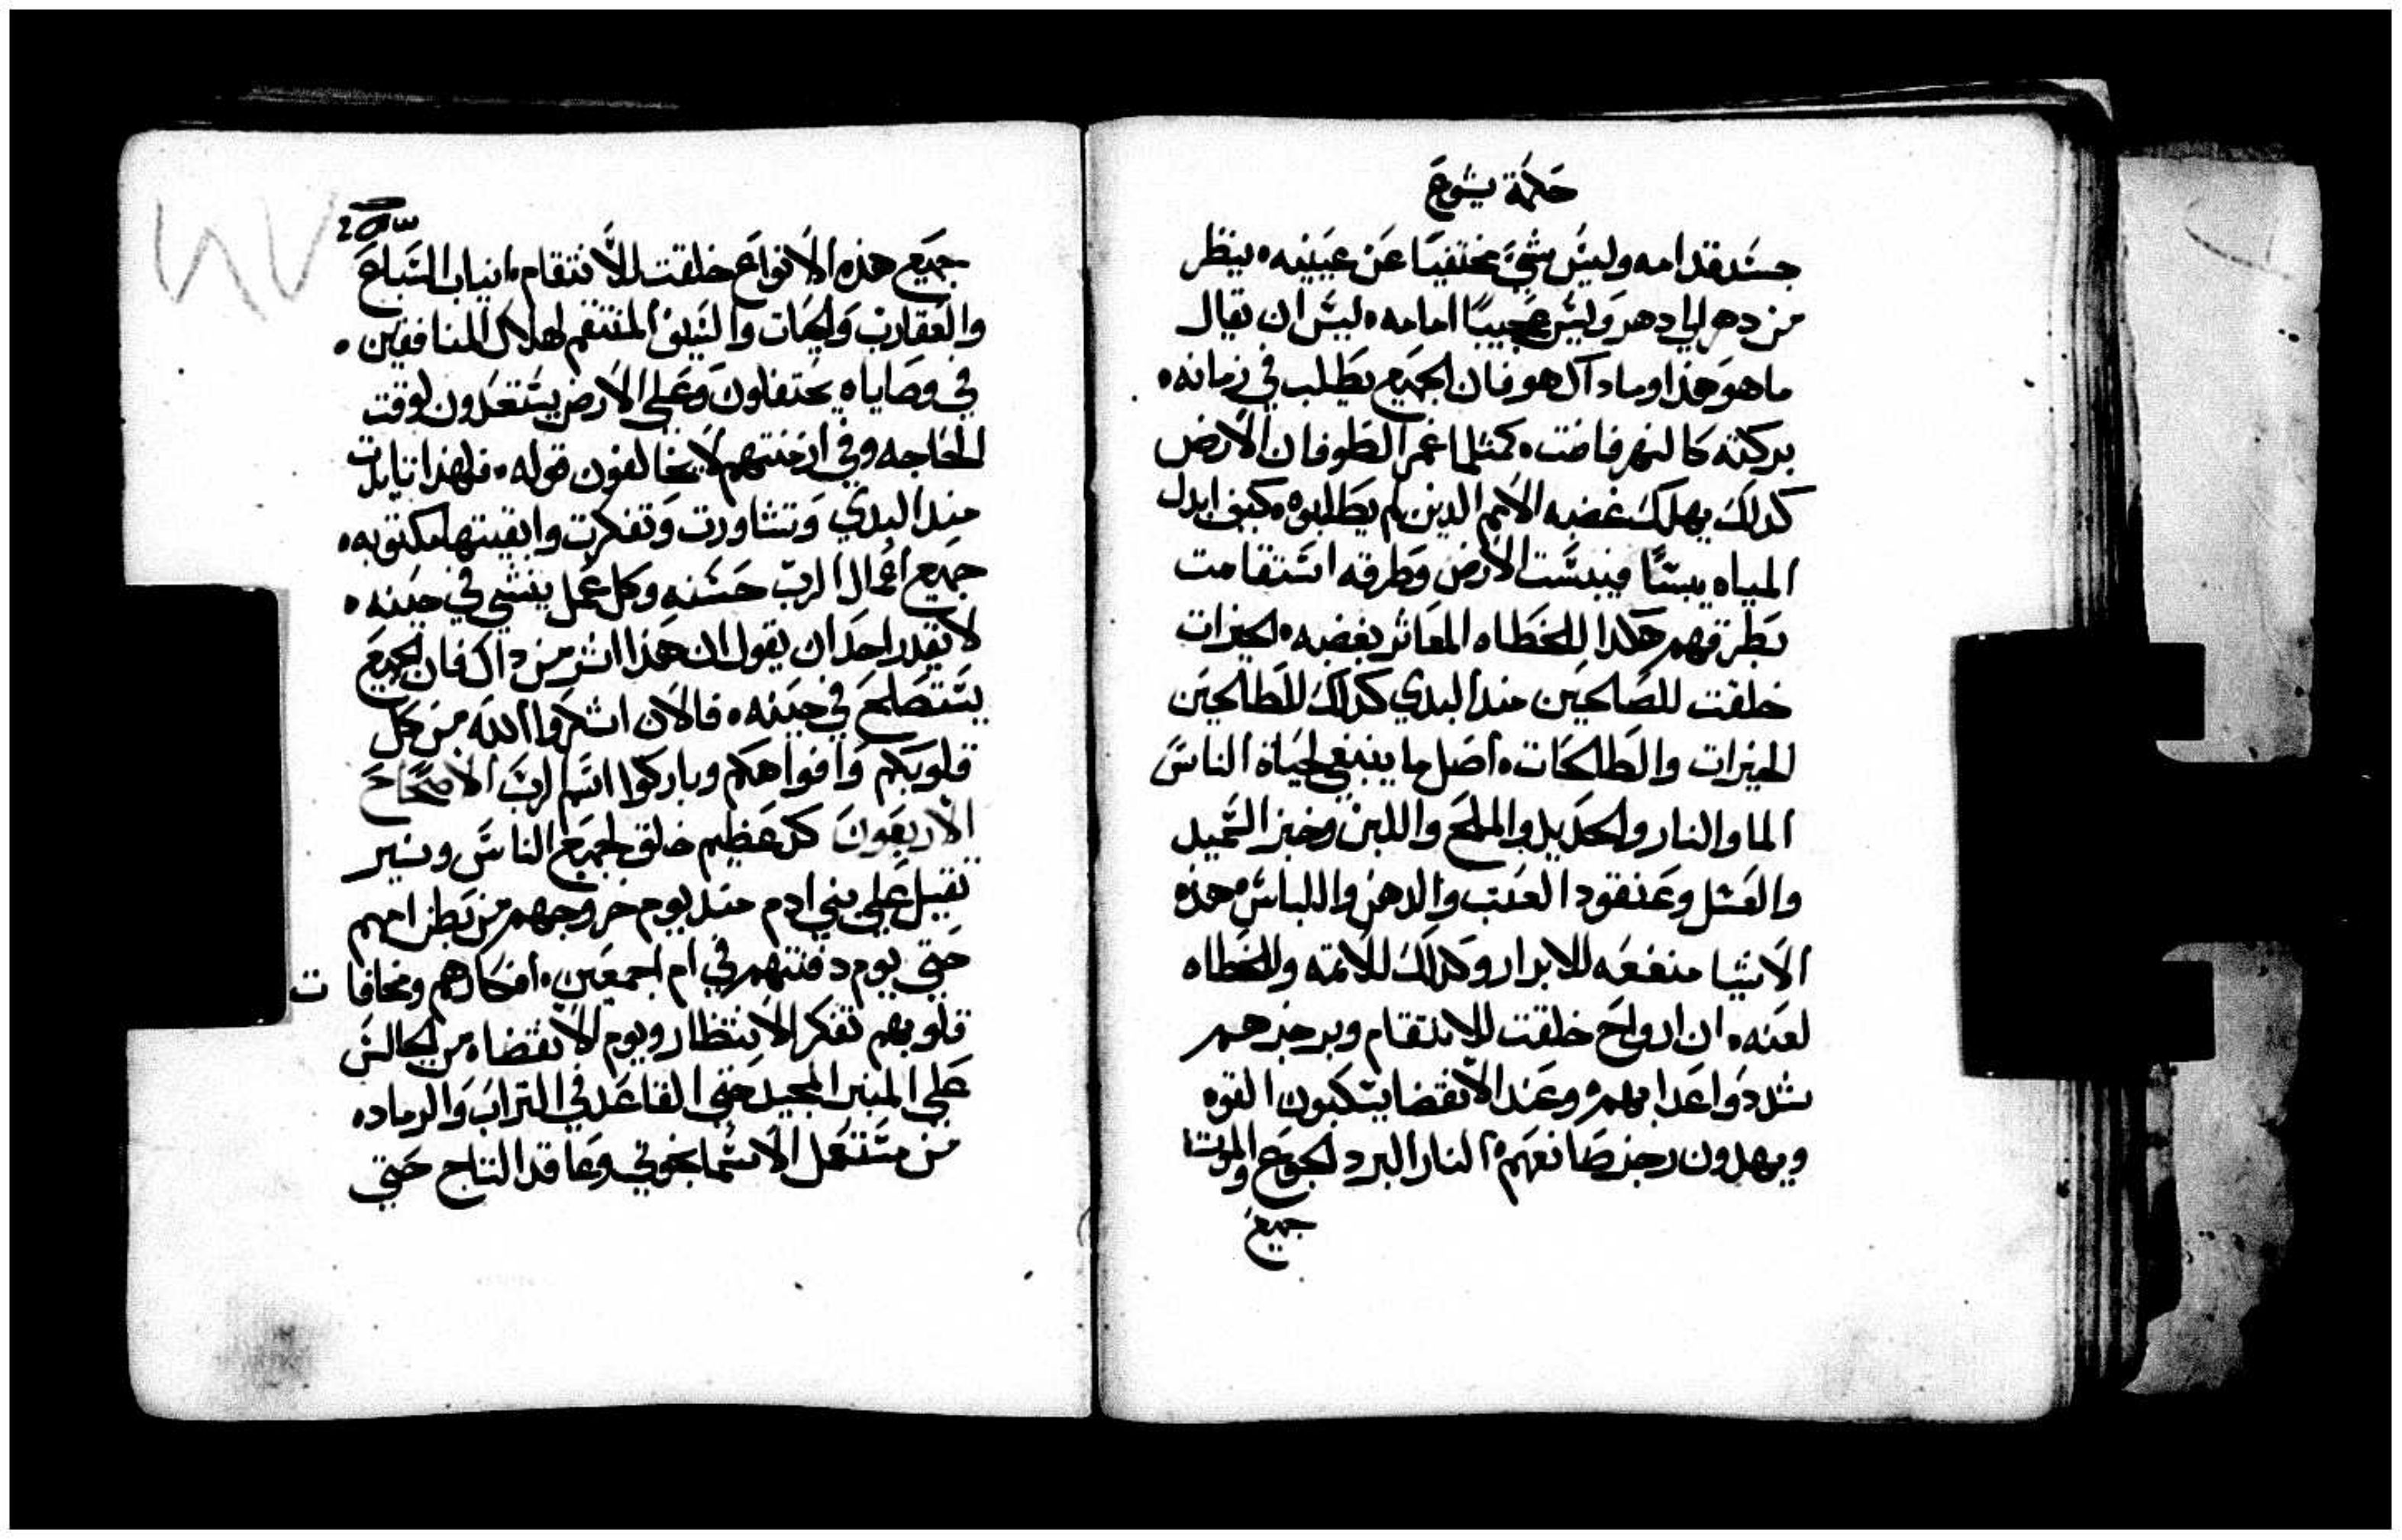 حكمة يشوع
جسد قدامه وليس شيء مختفيا عن عينيه. ينظر
من دهر الي دهر وليس عجيبًا امامه. ليس ان يقال
ما هو هذا او ماداك هو فان الجميع يطلب في زمانه.
بركته كالنهر فاضت. كمثلما غمر الطوفان الارض
كدلك يهلك غضبه الامم الدين لم يطلبوه. كيف ابدل
المياه يبسًا فيبست الارض وطرقه استقامت
بطرقهم هكدا للخطاه المعاثر بغضبه. الخيرات
خلقت للصالحين مند البدي كدلك للطالحين
الخيرات والطالحات. اصل ما ينبغي لحياة الناس
الما والنار والحديد والملح واللبن وخبز السميد
والعسل وعنقود العنب والدهن واللباس. هذه
الاشيا منفعه للابرار وكدلك للائمه والخطاه
لعنه. ان ارواح خلقت للانتقام وبرجزهم
شددوا عدابهم. وعند الانقضا يسكبون القوه
ويهدون رجز صانعهم. النار البرد الجوع والموت
جميع
جميع هذه الانواع خلقت للانتقام. انياب السباع
والعقارب والحيات والسيف المنتقم لهلاك المنافقين.
في وصاياه يحتفلون وعلي الارض يستعدون لوقت
الحاجه وفي ازمنتهم لا يخالفون قوله. فلهذا تايدت
مند البدي وتشاورت وتفكرت وابقيتها مكتوبه.
جميع اعمال الرب حسنه وكل عمل ينشي في حينه.
لا يقدر احد ان يقول ان هذا اشر من داك فان الجميع
يستصلح في حينه. فالان اشكروا الله من كل
قلوبكم وافواهكم وباركوا اسم الرب الاصحاح
الاربعون كد عظيم خلق لجميع الناس ونير
ثقيل علي بني ادم مند يوم خروجهم من بطن امهم
حتي يوم دفنتهم في ام اجمعين. افكارهم ومخافات
قلوبهم تفكر الانتظار ويوم الانقضاء. من الجالس
علي المنبر المجيد حتي القاعد في التراب والرماد.
من مستعمل الاسمانجوني وعاقد التاج حتي